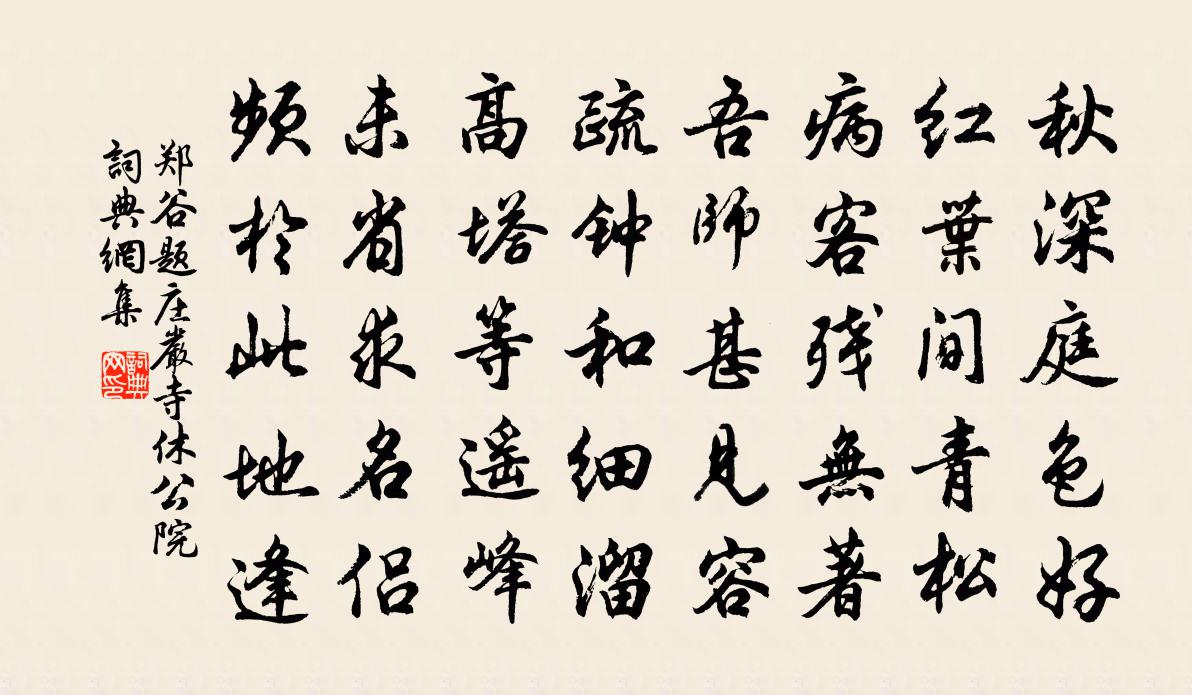 秋深庭色好
红葉间青松
病客残無著
吾師甚見容
疏钟和细溜
高塔等遥峰
未省求名侣
频於此地逢
郑谷题庄严寺休公院
詞典網集
詞典
网印